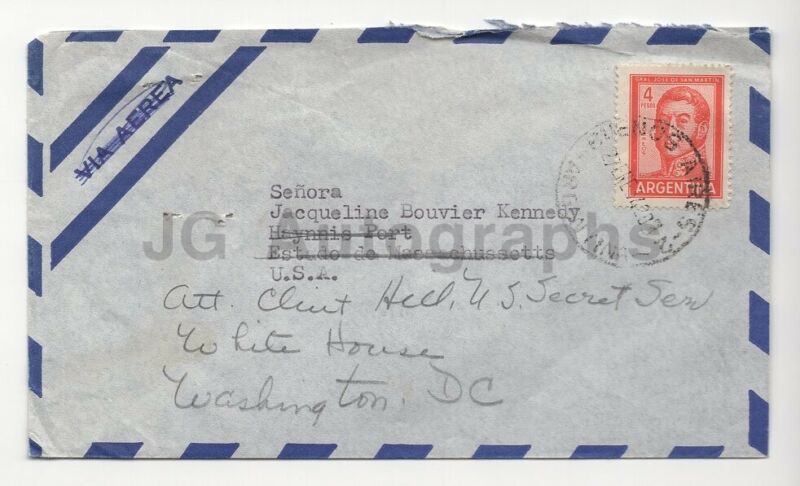 VIA AEREA
GRAL. JOSE DE SAN MARTIN
4
PESOS
ARGENTINA
BUENOS AIRES
Señora
Jacqueline Bouvier Kennedy
Haynnis Port
Estado de Massachussetts
U.S.A.
JG Autographs
Att. Clint Hill, U.S. Secret Serv
White House
Washington, DC